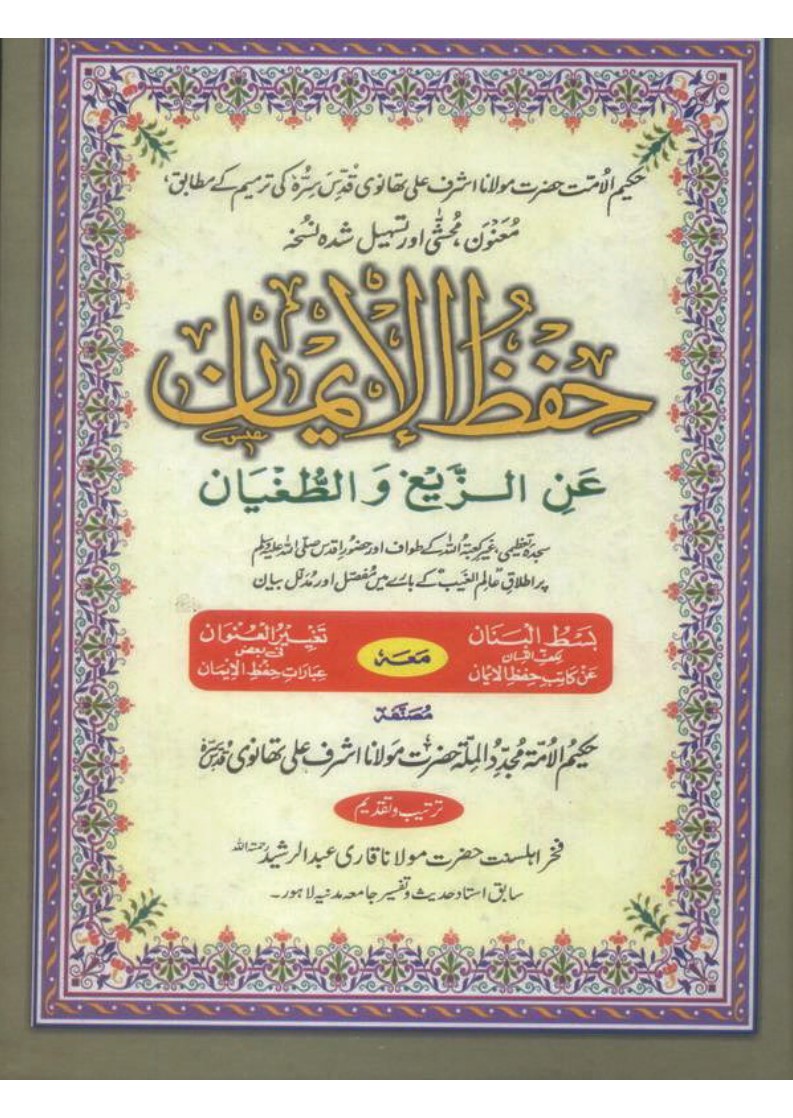 حکیم الاُمّت حضرت مولانا اشرف علی تھانوی قُدِّسَ سِرُّہٗ کی ترمیم کے مطابق،
مُعَنْوَن، مُحَشّٰی اور تسہیل شدہ نسُخہ
حِفْظُ الْإِیْمَان
عَنِ الزَّيْغِ وَالطُّغْيَان
سجدہ تعظیمی، غیر کعبۃُ اللہ کے طواف اور حضورِ اقدس صلی اللہ علیہ وسلم
پر اطلاقِ ”عَالِم الغَیب“ کے بارے میں مُفصّل اور مُدلّل بیان
بَسْطُ الْبَنَان
لِكَفِّ اللِّسَان
عَنْ كَاتِبِ حِفْظِ الْاِيْمَان
مَعَہٗ
تَغْيِيْرُ الْعُنْوَان
فِي بَعْضِ
عِبَارَاتِ حِفْظِ الْاِيْمَان
مُصنّفہٗ
حکیمُ الاُمّۃ مُجدِّدُ المِلّۃ حضرت مَولانا اشرف علی تھانوی قُدِّسَ سِرُّہٗ
ترتیب و تقدیم
فخر اہلسنت حضرت مولانا قاری عبدالرشید رحمۃ اللہ
سابق استاد حدیث و تفسیر جامعہ مدنیہ لاہور۔